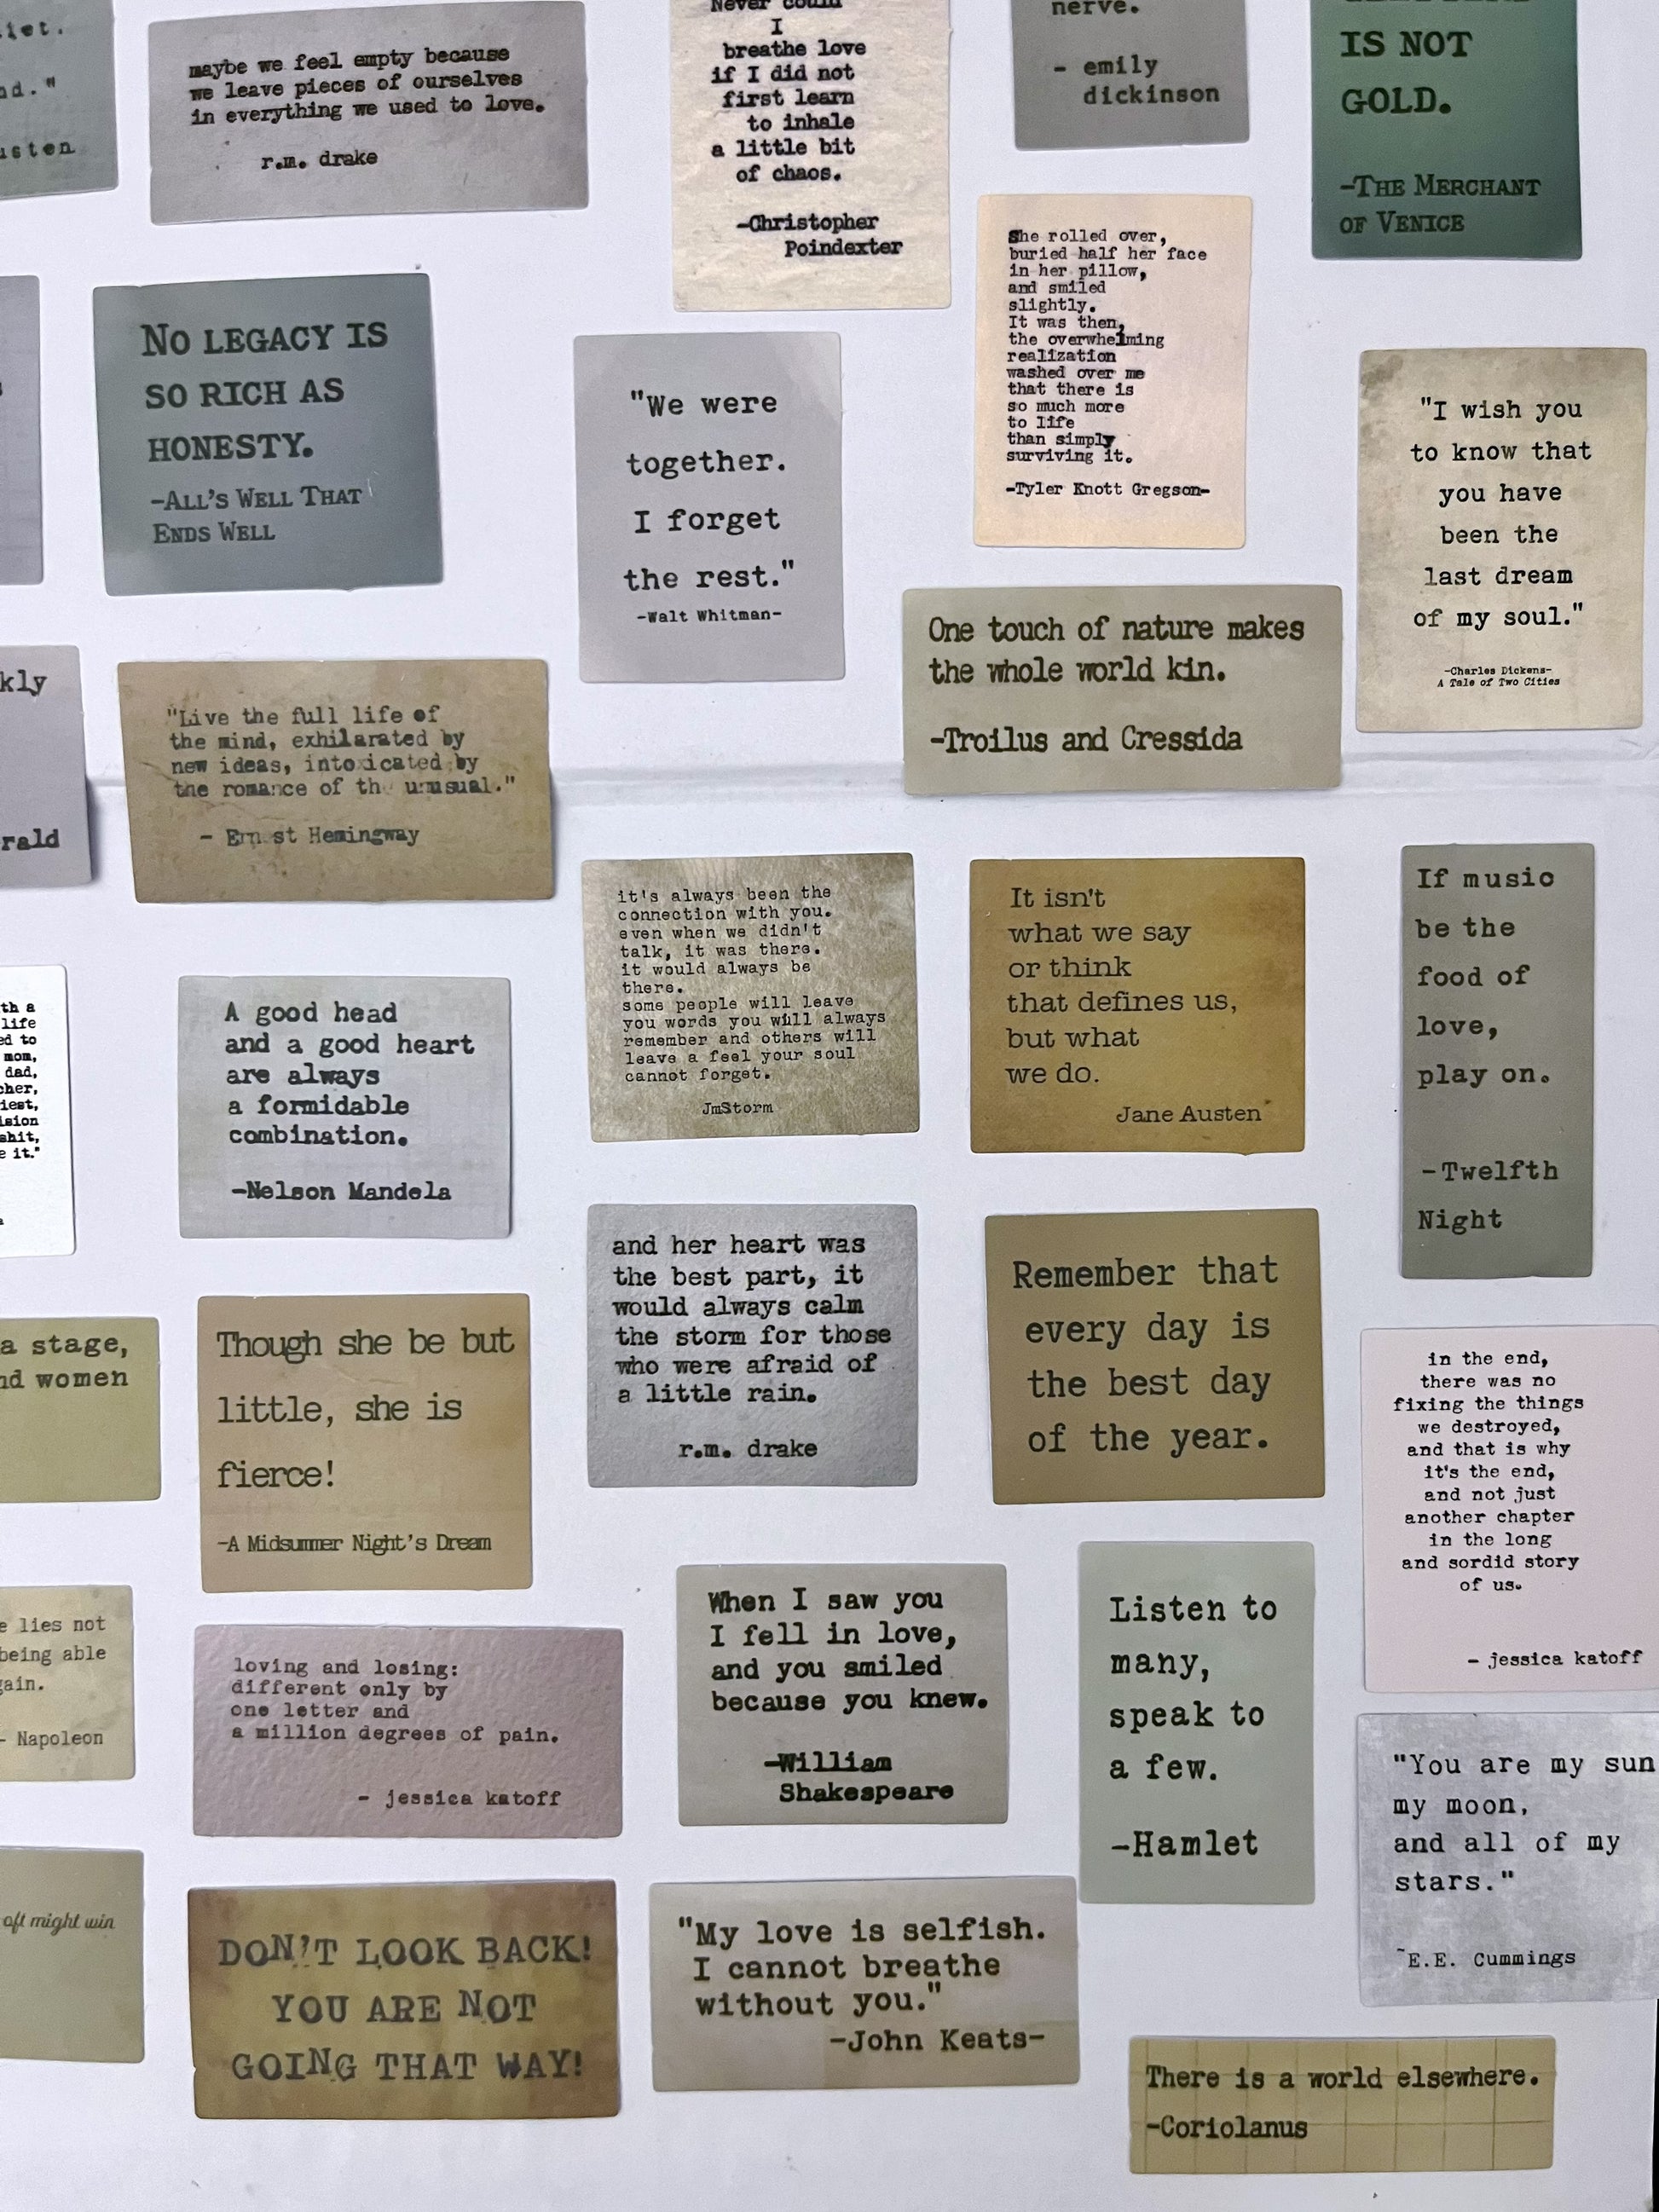 iet.
nd."
usten
maybe we feel empty because
we leave pieces of ourselves
in everything we used to love.
r.m. drake
Never could
I
breathe love
if I did not
first learn
to inhale
a little bit
of chaos.
-Christopher
Poindexter
nerve.
- emily
dickinson
IS NOT
GOLD.
-THE MERCHANT
OF VENICE
She rolled over,
buried half her face
in her pillow,
and smiled
slightly.
It was then,
the overwhelming
realization
washed over me
that there is
so much more
to life
than simply
surviving it.
-Tyler Knott Gregson-
NO LEGACY IS
SO RICH AS
HONESTY.
-ALL'S WELL THAT
ENDS WELL
"We were
together.
I forget
the rest."
-Walt Whitman-
"I wish you
to know that
you have
been the
last dream
of my soul."
-Charles Dickens-
A Tale of Two Cities
One touch of nature makes
the whole world kin.
-Troilus and Cressida
kly
rald
"Live the full life of
the mind, exhilarated by
new ideas, intoxicated by
the romance of the unusual."
- Ernest Hemingway
it's always been the
connection with you.
even when we didn't
talk, it was there.
it would always be
there.
some people will leave
you words you will always
remember and others will
leave a feel your soul
cannot forget.
JmStorm
It isn't
what we say
or think
that defines us,
but what
we do.
Jane Austen
If music
be the
food of
love,
play on.
-Twelfth
Night
th a
life
ed to
mom,
dad,
cher,
iest,
ision
shit,
e it."
A good head
and a good heart
are always
a formidable
combination.
-Nelson Mandela
and her heart was
the best part, it
would always calm
the storm for those
who were afraid of
a little rain.
r.m. drake
Remember that
every day is
the best day
of the year.
a stage,
nd women
Though she be but
little, she is
fierce!
-A Midsummer Night's Dream
in the end,
there was no
fixing the things
we destroyed,
and that is why
it's the end,
and not just
another chapter
in the long
and sordid story
of us.
- jessica katoff
e lies not
being able
gain.
- Napoleon
loving and losing:
different only by
one letter and
a million degrees of pain.
- jessica katoff
When I saw you
I fell in love,
and you smiled
because you knew.
-William
Shakespeare
Listen to
many,
speak to
a few.
-Hamlet
"You are my sun
my moon,
and all of my
stars."
~E.E. Cummings
oft might win
DON'T LOOK BACK!
YOU ARE NOT
GOING THAT WAY!
"My love is selfish.
I cannot breathe
without you."
-John Keats-
There is a world elsewhere.
-Coriolanus